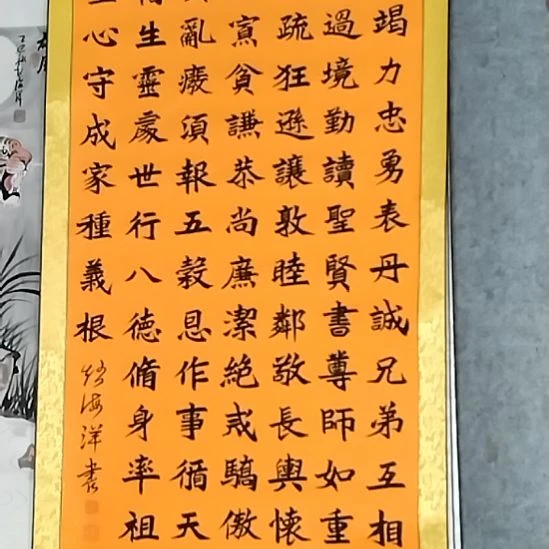 竭力忠勇表丹誠兄弟互相
過境勤讀聖賢書尊師如重
疏狂遜讓敦睦鄰敬長輿懷
寡貧謙恭尚廉潔絕戒驕傲
亂癈須報五穀恩作事循天
生靈處世行八德脩身率祖
心守成家種義根
海洋書